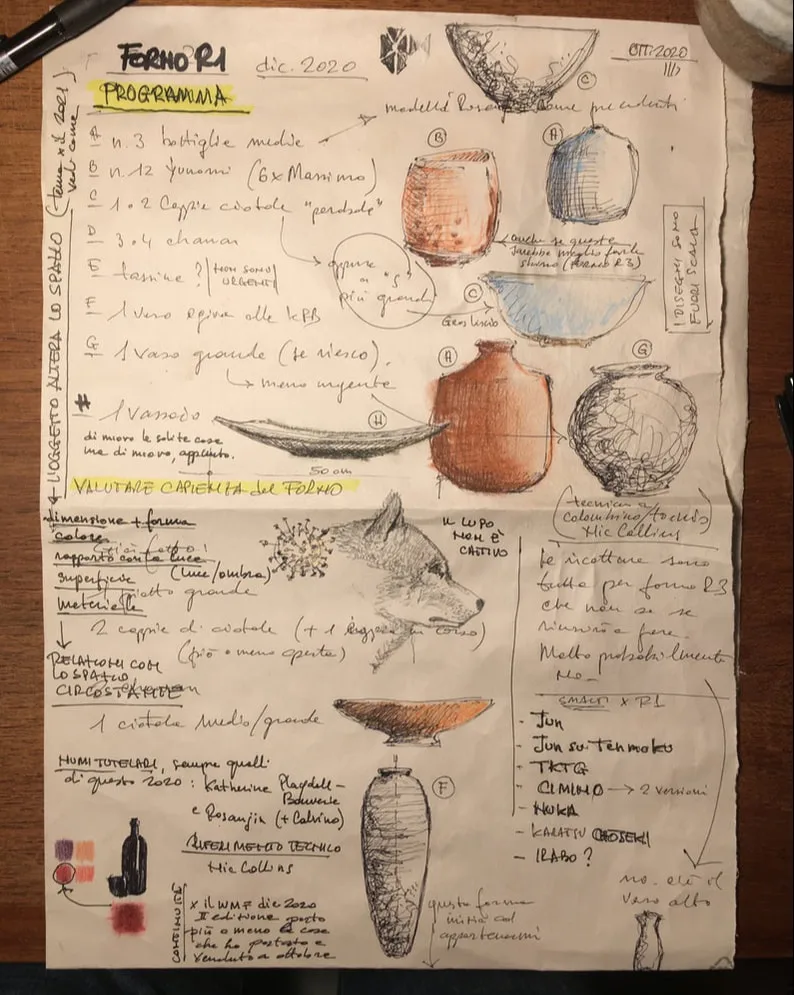 FORNO R1 dic. 2020
OTT. 2020
PROGRAMMA
(tema x il 2021)
vedi come
L'OGGETTO ALTERA LO SPAZIO
A n. 3 bottiglie medie
B n. 12 Yunomi (6x Massimo)
C 1 o 2 Coppie ciotole
D 3 o 4 chawan
E tassine? NON SONO
URGENTI
F 1 vaso
G 1 Vaso grande (se riesco).
meno urgente
# 1 Vassoio
di nuovo le solite cose
ma di nuovo, appunto.
VALUTARE CAPIENZA del FORNO
come precedenti
C
B
A
anche se queste
sarebbe meglio farle
(FORNO R3)
oppure
"S"
più grandi
C
I DISEGNI SONO
FUORI SCALA
A
G
H
50 cm
(tecnica
colombino/tornio)
Nic Collins
IL LUPO
NON È
CATTIVO
dimensione + forma
colore
rapporto con la luce
(luce/ombra)
superficie
materiale
piatto grande
2 coppie di ciotole (+ 1 in corso)
(più o meno aperte)
RELAZIONI CON
LO SPAZIO
CIRCOSTANTE
1 ciotola medio/grande
NUMI TUTELARI, sempre quelli
di questo 2020: Katherine Pleydell-
Bouverie
e Rosanjin (+ Calvino)
RIFERIMENTO TECNICO
Nic Collins
CONTINUITÀ
x il WMF dic 2020
II edizione porto
più o meno le cose
che ho portato e
venduto a ottobre
F
questa forma
inizia ad
appartenermi
Le ricotture sono
tutte per forno R3
che non so se
riuscirò a fare.
Molto probabilmente
No-
SMALTI x R1
- Jun
- Jun su Tenmoku
- TKTG
- CIMINO → 2 versioni
- NUKA
- KARATSU CHOSEN
- IRABO?
no. c'è il
vaso alto